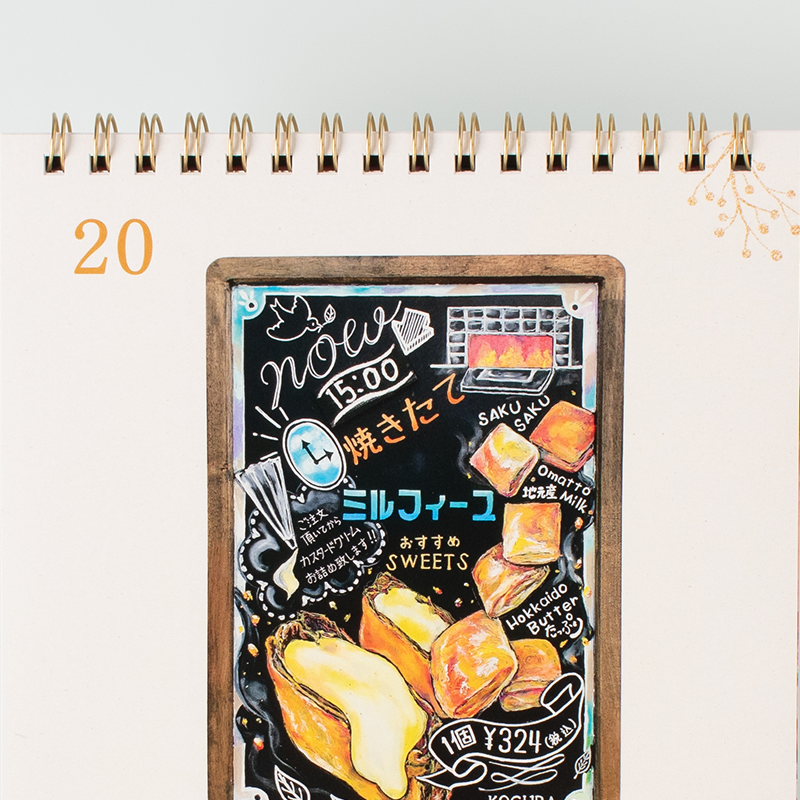 20
now
15:00
焼きたて
SAKU
SAKU
Omatto
地元産 Milk
ミルフィーユ
おすすめ
SWEETS
ご注文
頂いてから
カスタードクリーム
お詰め致します!!
Hokkaido
Butter
たっぷ
1個 ¥324(税込)
KOGURA